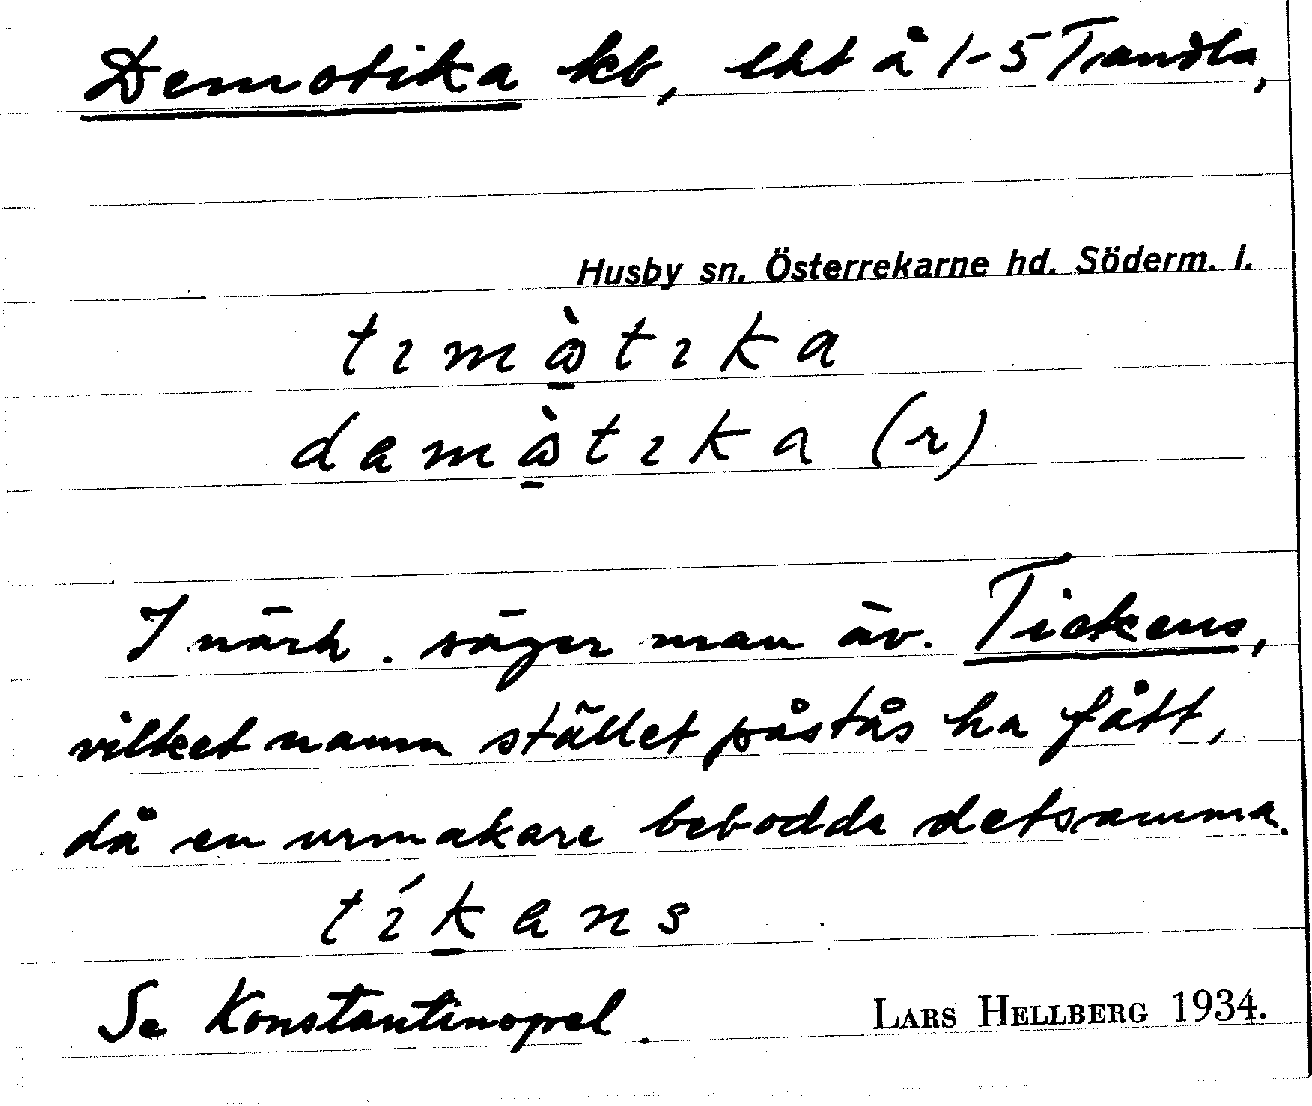 Demotika kb, lht å 1-5 Tandla,
Husby sn. Österrekarne hd. Söderm. l.
tımòtıka
damòtıka (r)
I närh. säger man äv. Tickens,
vilket namn stället påstås ha fått,
då en urmakare bebodde detsamma.
tíkens
Se Konstantinopel.
LARS HELLBERG 1934.